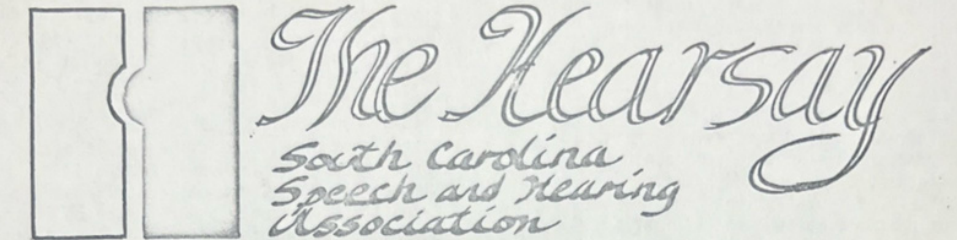 The Hearsay
South Carolina
Speech and Hearing
Association